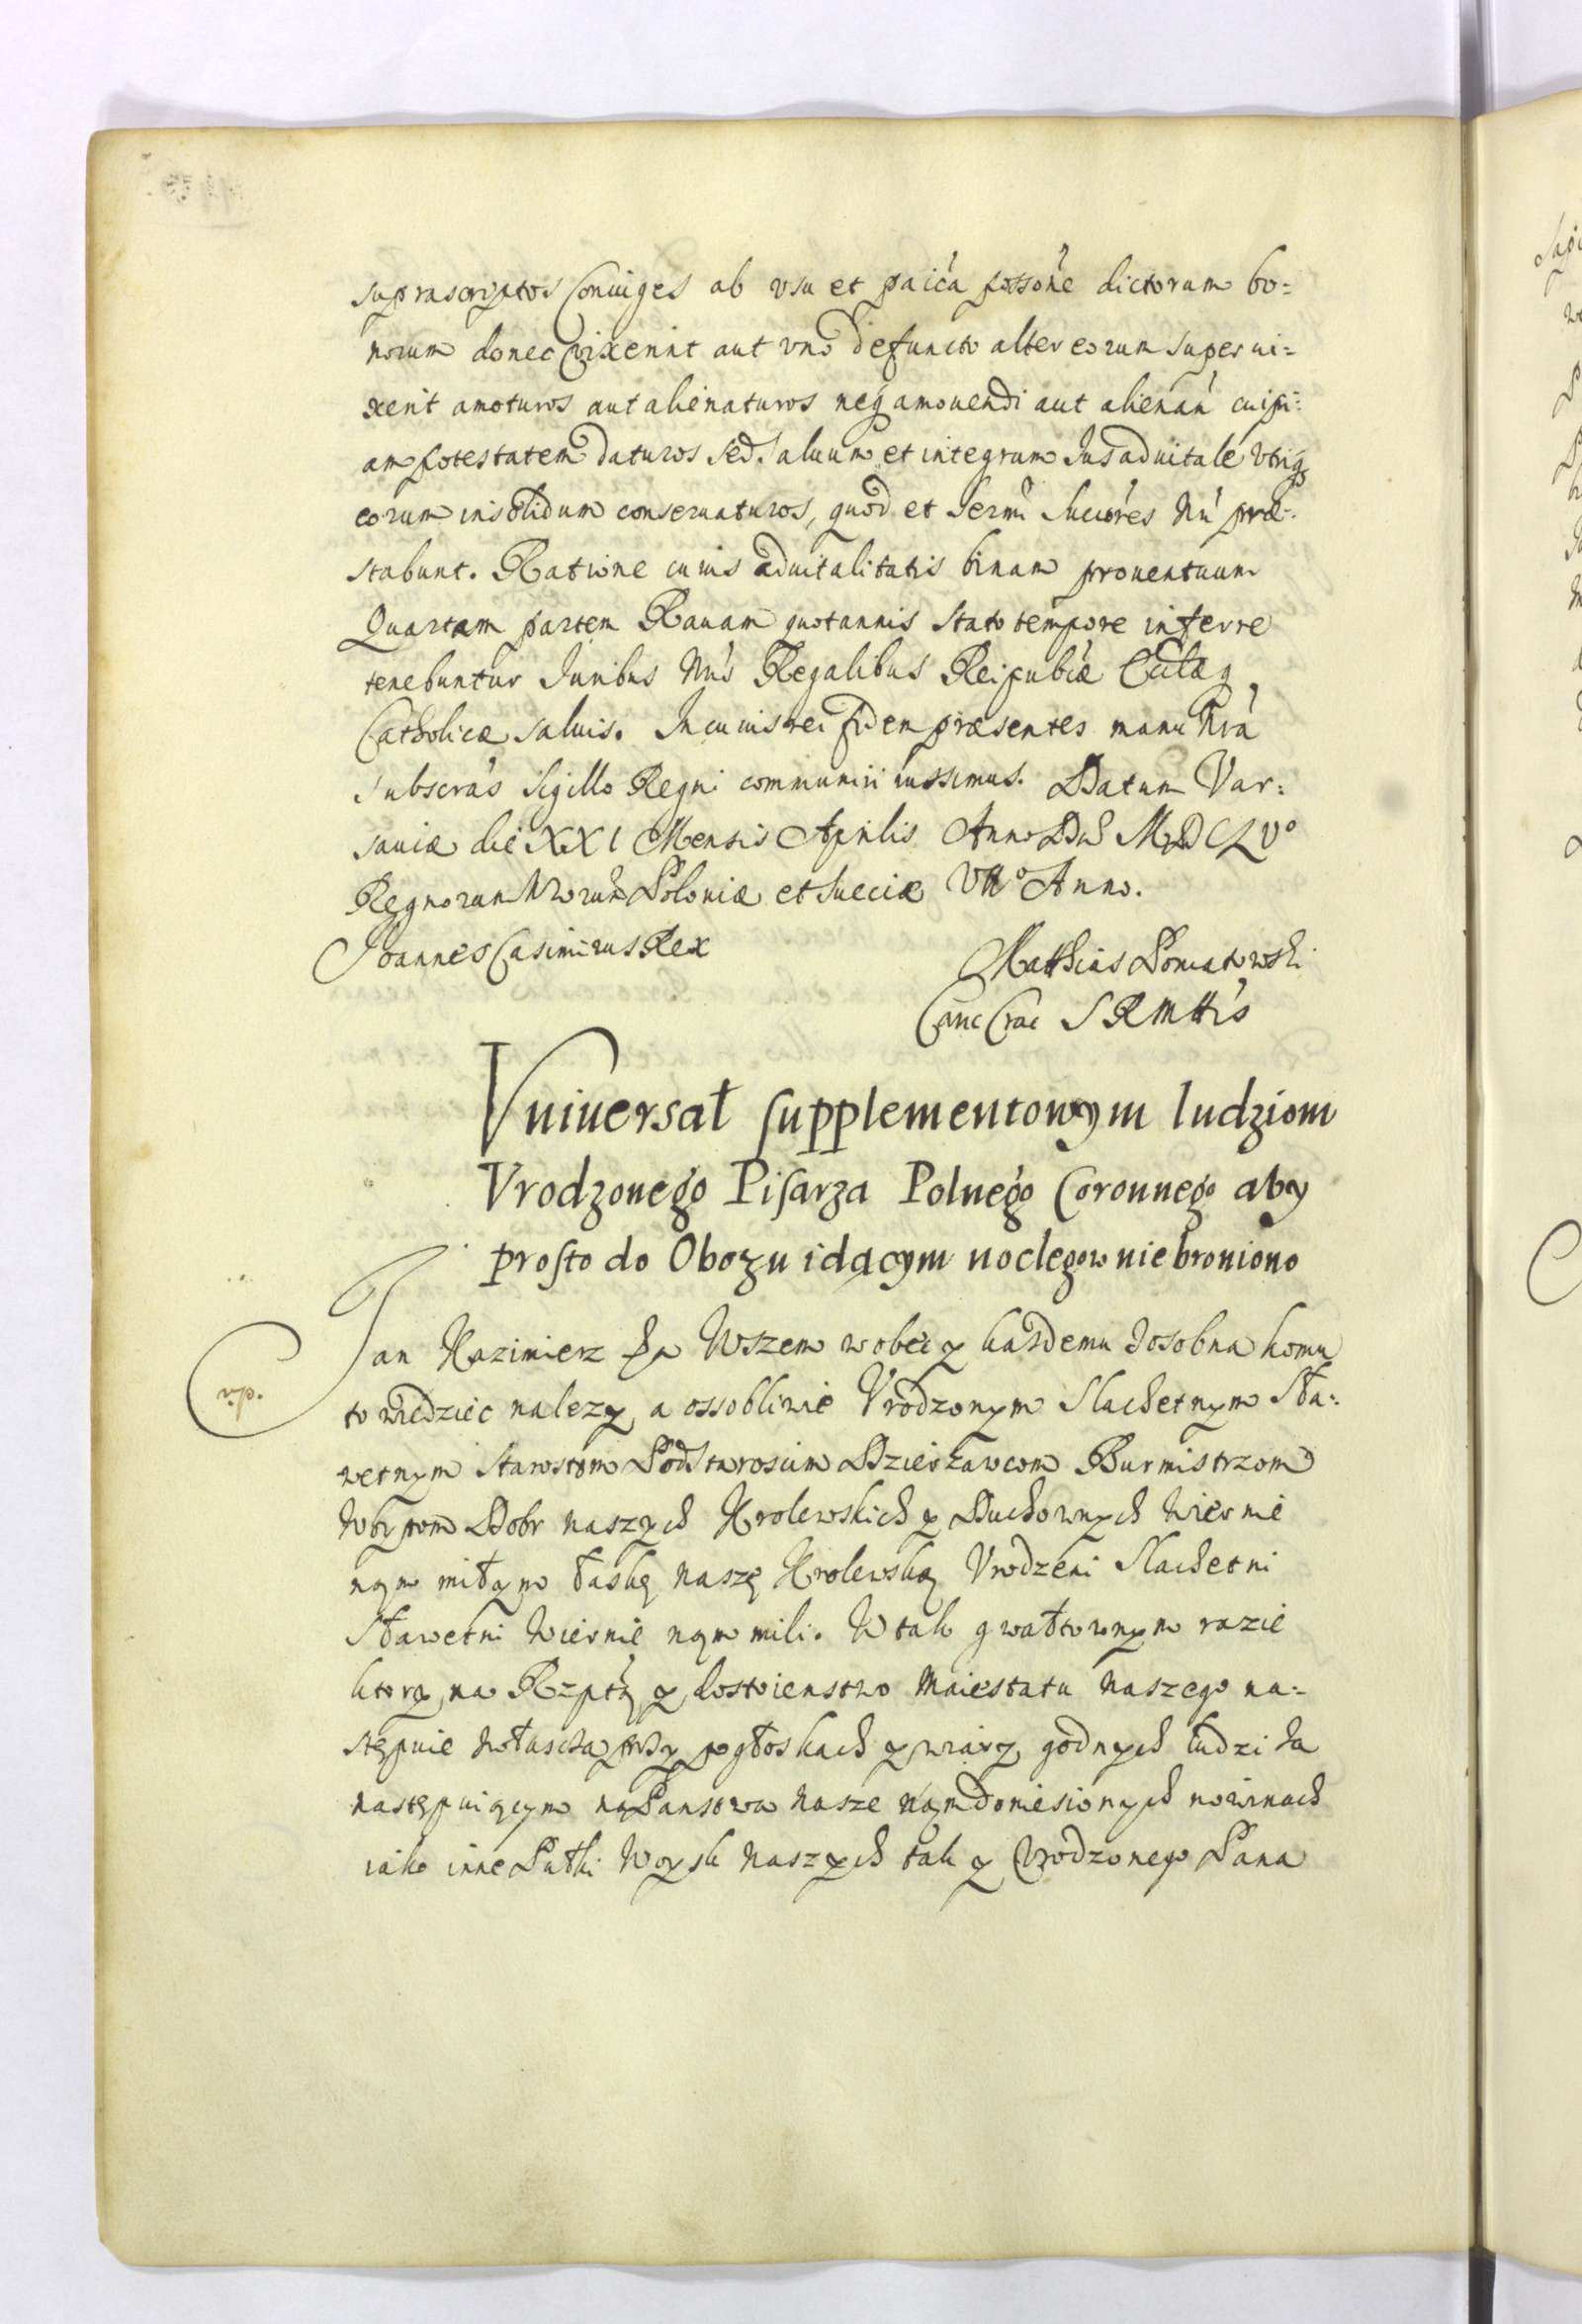 supra scriptos Coniuges ab vsu et paicá possoné dictorum bo=
norum donec vixerint aut vno defuncto alter eorum superui=
xerit amoturos aut alienaturos neq amouendi aut alienań cuipi=
am potestatem daturos sed saluum et integrum Jus aduitale vtriq
eorum insolidum conseruaturos, quod et Sermi Succóres Nŕi præ=
stabunt. Ratione cuius aduitalitatis binam prouentuum
Quartam partem Rauam quotannis stato tempore inferre
tenebuntur Juribus Nŕis Regalibus Reipubcæ Ecclæq
Catholicæ saluis. In cuius rei fidem præsentes manu Nrá
subscrás sigillo Regni communiri iussimus. Datum Var=
sauiæ die XXI Mensis Aprilis Anno Dni MDCLVo
Regnorum Nrorum Poloniæ et Sueciæ VIIo Anno.
Joannes Casimirus Rex
Mathias Poniatowski
Canc Crac S R Mttis
Vniuersał supplementowym ludziom
Vrodzonego Pisarza Polnego Coronnego aby
prosto do Obozu idącym noclegow nie broniono
Jan Kazimierz Wszem wobec y kazdemu zosobna komu
to wiedziec nalezy, a ossobliwie Vrodzonym Slachetnym Sła=
wetnym Starostom Podstaroscim Dzierzawcom Burmistrzom
Woytom Dobr naszych Krolewskich y Duchownych wiernie
nąm miłym łaskę naszę Krolewską Vrodzeni Slachetni
Sławetni wiernie nąm mili. W tak gwałtownym razie
ktory na Rzptą y dostoienstwo Maiestatu naszego na=
stępuie zwłascza przy pogłoskach y wiary godnych ludzi za
następuiącym na Panstwa nasze nąm doniesionych nowinach
iako inne Pułki Woysk naszych tak y Vrodzonego Pana